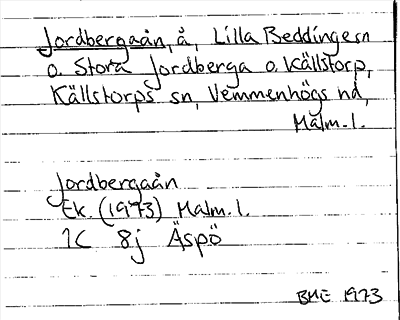 Jordbergaån, å, Lilla Beddinge sn
o. Stora Jordberga o. Källstorp,
Källstorps sn, Vemmenhögs hd,
Malm. l.
Jordbergaån
Ek. (1973) Malm. l.
1C 8j Äspö
BME 1973